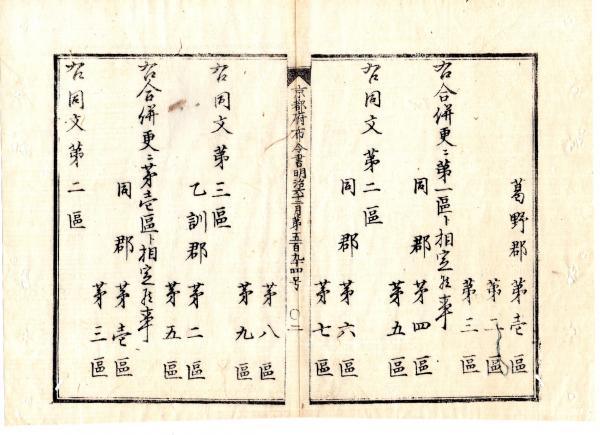 葛野郡 第壱區
第二區
第三區
右合併更ニ第一區ト相定候事
同郡 第四區
第五區
右同文第二區
同郡 第六區
第七區
京都府布令書明治 二月第五百 四号 〇二
第八區
第九區
右同文第三區
乙訓郡 第二區
第五區
右合併更ニ第壱區ト相定候事
同郡 第壱區
第三區
右同文第二區